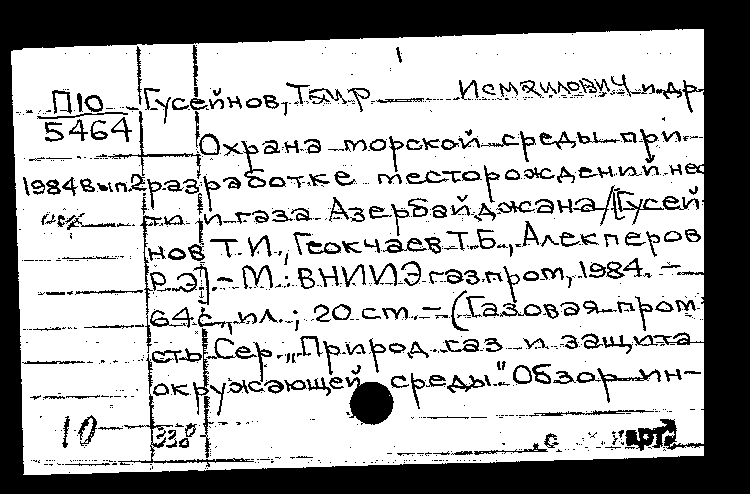 П10 Гусейнов, Таир Исмаилович и др.
5464
Охрана морской среды при
1984 Вып.2 разработке месторождений неф
ти и газа Азербайджана / [Гусей
нов Т.И., Геокчаев Т.Б., Алекперов
Р.Э]. – М.: ВНИИЭгазпром, 1984. –
64с., ил.; 20 cm. – (Газовая пром
сть Сер. „Природ. газ и защита
окружающей среды" Обзор ин-
10 33.8